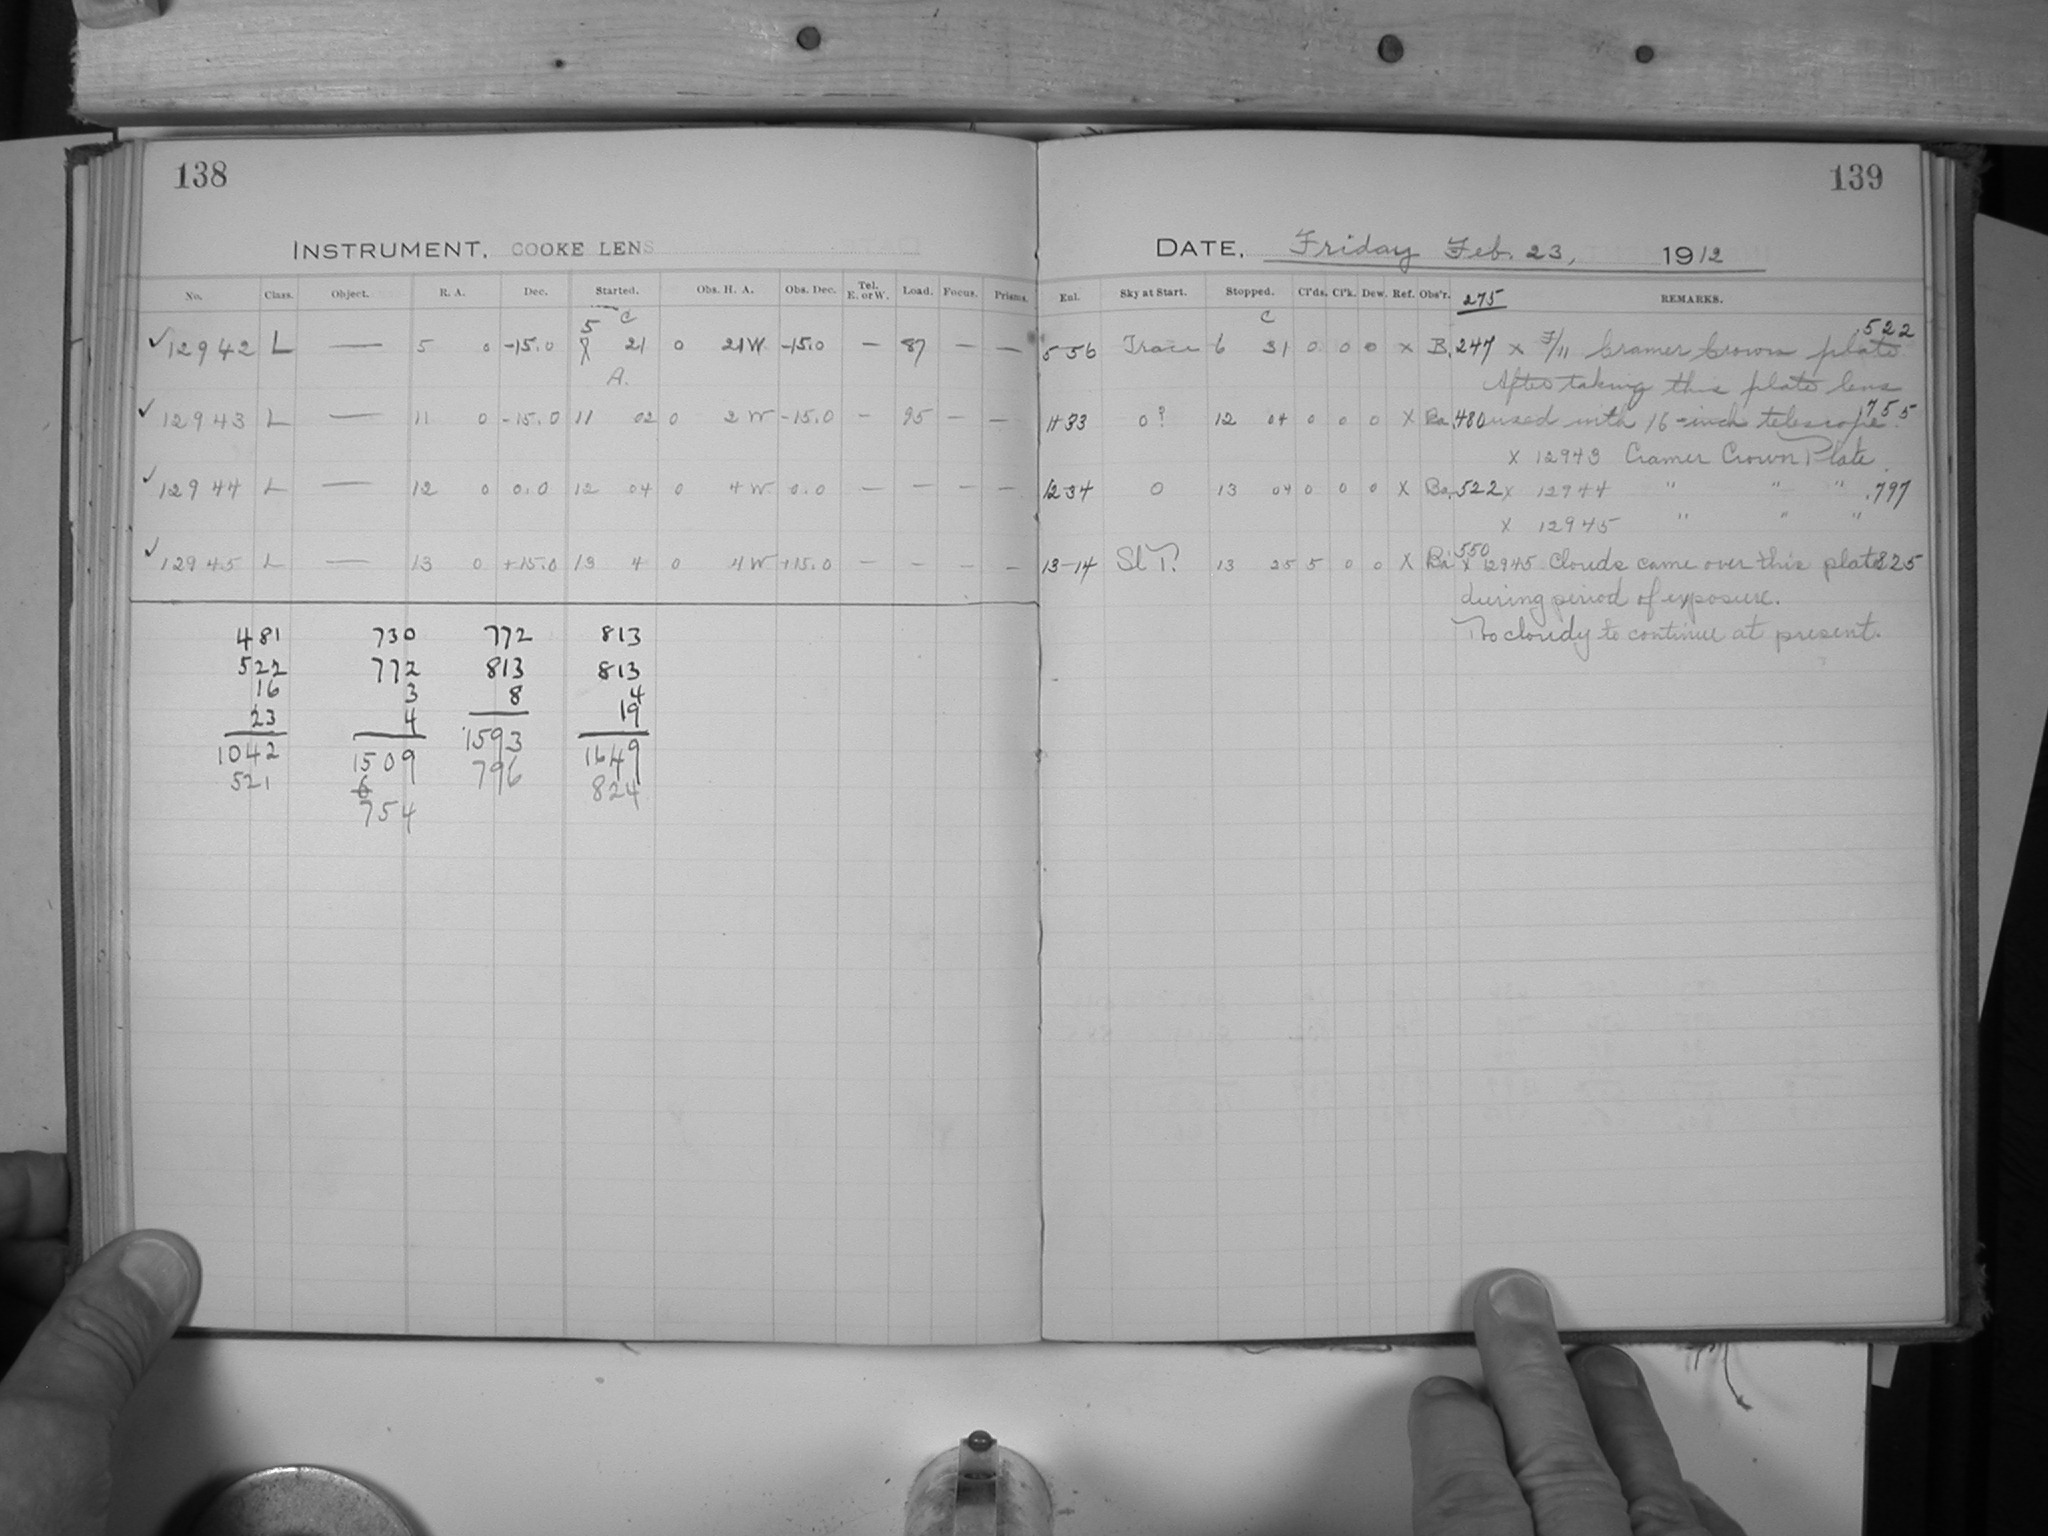 138
INSTRUMENT, COOKE LENS
No. Class. Object. R. A. Dec. Started. Obs. H. A. Obs. Dec. Tel. E. or W. Load. Focus. Prisms.
✓12942 L — 5 0 -15.0 5 21 0 21 W. -15.0 — 87 — —
C
A.
✓ 12943 L — 11 0 -15.0 11 02 0 2 W -15.0 — 95 — —
✓ 12944 L — 12 0 0.0 12 04 0 4 W 0.0 — — — —
✓ 12945 L — 13 0 +15.0 13 4 0 4 W +15.0 — — — —
481 730 772 813
522 772 813 813
16 3 8 4
23 4 19
1042 1509 1593 1649
521 796 824
754
139
DATE, Friday Feb. 23, 1912
Exl. Sky at Start. Stopped. Cl'ds. Cl'k. Dew. Ref. Obs'r. 275 REMARKS.
C
5-56 Trace 6 31 0 0 0 x B. 247 x F/11 Cramer Crown plate .522
After taking this plate lens
11-33 0? 12 04 0 0 0 X Ba .480 used with 16-inch telescope. .755
x 12943 Cramer Crown Plate
12-34 0 13 04 0 0 0 X Ba .522 x 12944 " " " .797
x 12945 " " "
13-14 Sl T? 13 25 5 0 0 X Ba .550 x 12945 Clouds came over this plate .825
during period of exposure.
Too cloudy to continue at present.